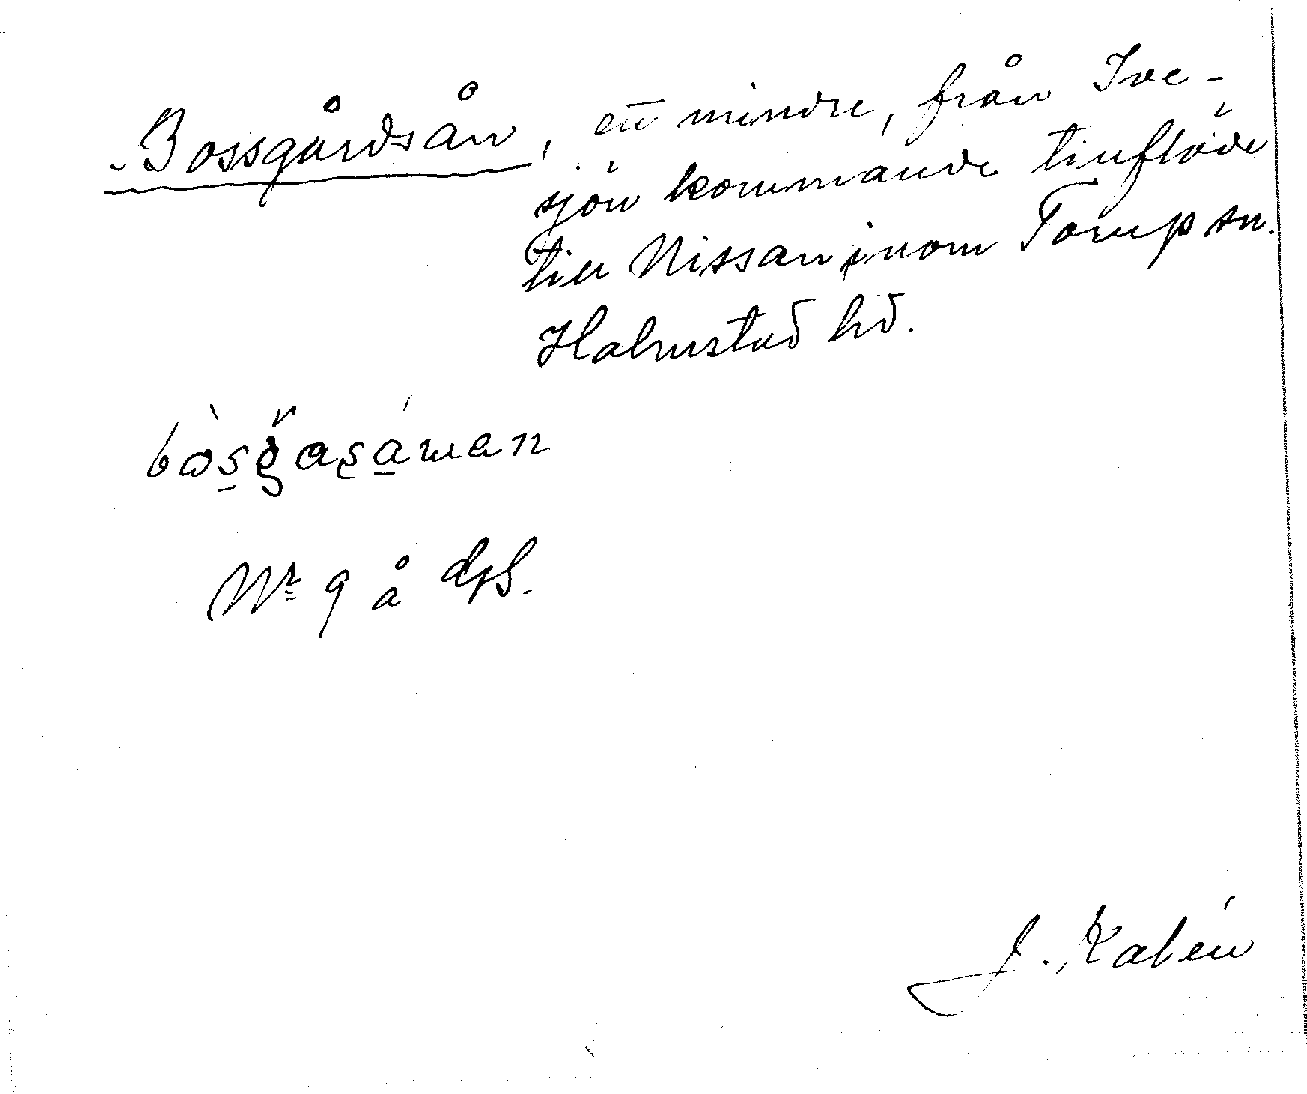 Bossgårdsån, ett mindre, från Ive-
sjön kommande tillflöde
till Nissan inom Torup sn.
Halmstad hd.
Nr 9 å
J. Kalén